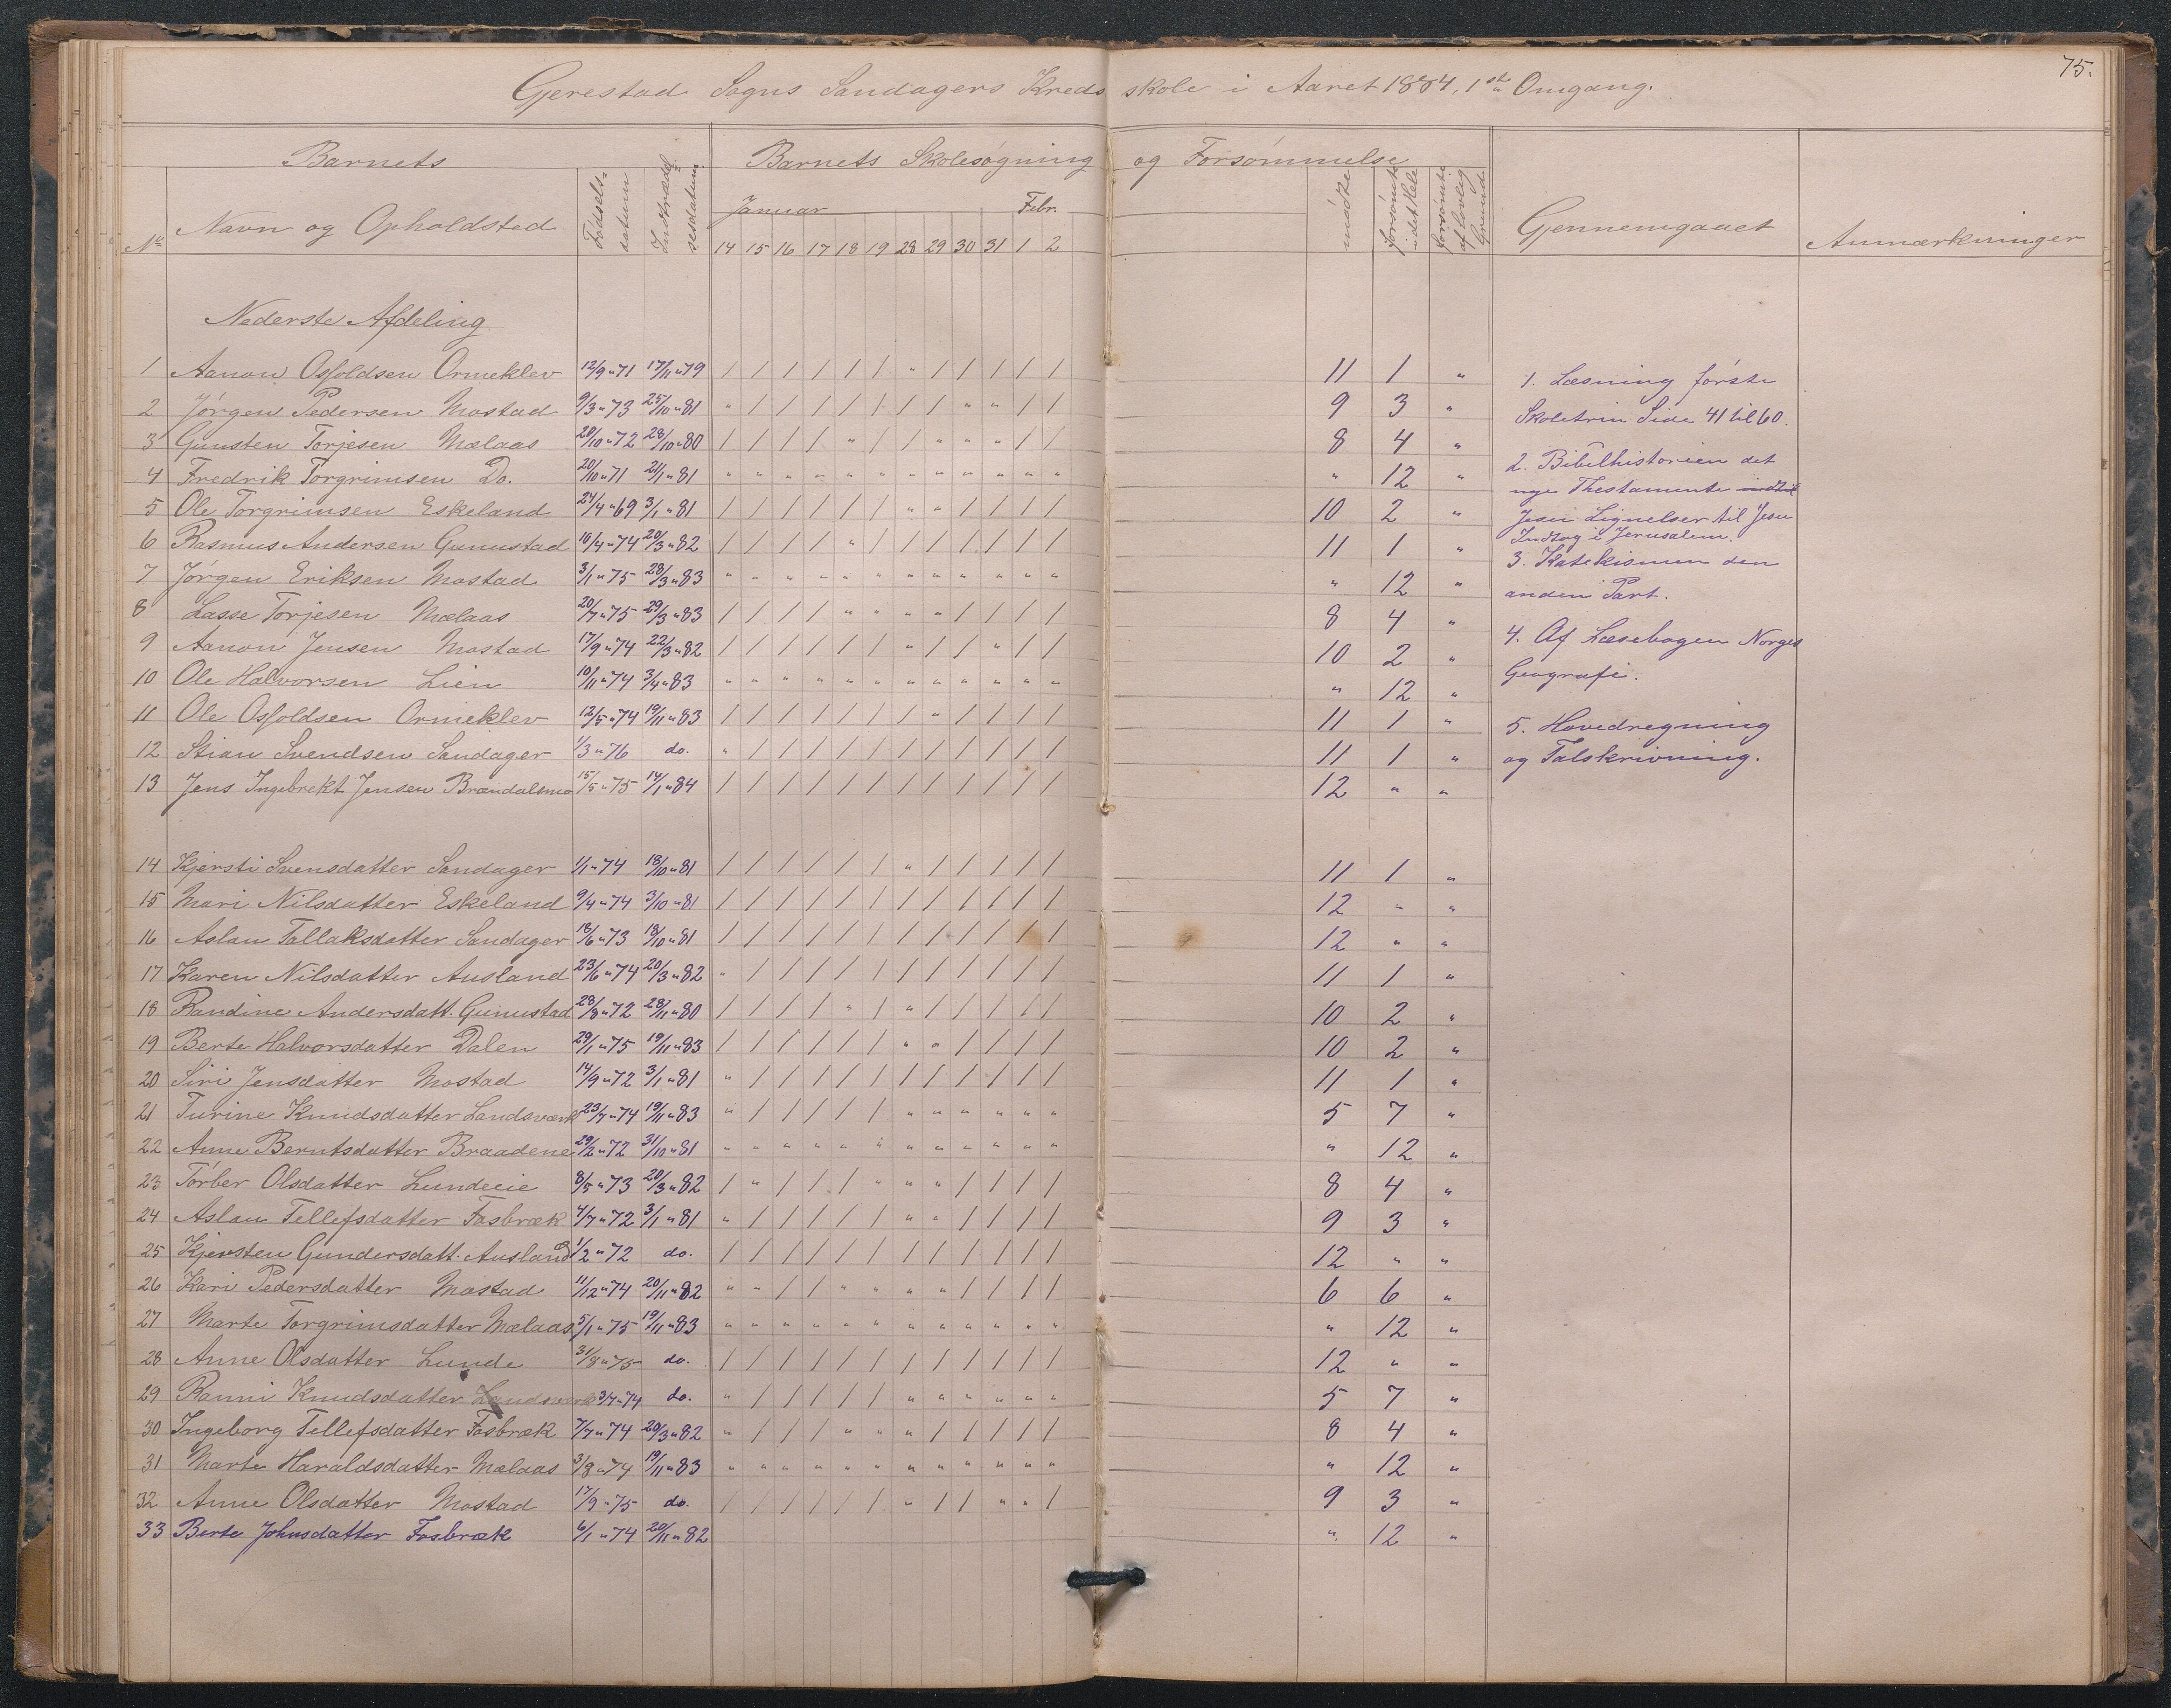 75.
Gjerestad Sogns Sandagers Kredsskole i Aaret 1884, 1ste Omgang.
Barnets | Barnets Skolesøgning og Forsømmelse
No | Navn og Opholdsted | Fødsels-datum | Indtrædelsesdatum | Januar | Febr. | mødte | forsømte i det Hele | forsømte af lovlig Grund | Gjennemgaaet | Anmærkninger
14 15 16 17 18 19 28 29 30 31 1 2
Nederste Afdeling
1 Aanon Osfoldsen Ormeklev 12/9 "71 17/11 "79 / / / / / / " / / / / / 11 1 "
2 Jørgen Pedersen Mostad 9/3 "73 25/10 "81 " / / / / / / / " " / / 9 3 "
3 Gunsten Torjesen Mælaas 20/10 "72 28/10 "80 / / / / " / / " " " / / 8 4 "
4 Fredrik Torgrimsen Do. 20/10 "71 21/1 "81 " " " " " " " " " " " " " 12 "
5 Ole Torgrimsen Eskeland 24/4 "69 3/1 "81 / / / / / / " " / / / / 10 2 "
6 Rasmus Andersen Gunustad 16/4 "74 20/3 "82 / / / / " / / / / / / / 11 1 "
7 Jørgen Eriksen Mostad 3/1 "75 28/3 "83 " " " " " " " " " " " " " 12 "
8 Lasse Torjesen Mælaas 20/7 "75 29/3 "83 / / / / " " " " / / / / 8 4 "
9 Aanon Jensen Mostad 17/9 "74 22/3 "82 / / / / / / " / / " / / 10 2 "
10 Ole Halvorsen Lien 10/11 "74 3/4 "83 " " " " " " " " " " " " " 12 "
11 Ole Osfoldsen Ormeklev 12/5 "74 19/11 "83 / / / / / / / " / / / / 11 1 "
12 Stian Svendsen Sandager 1/3 "76 do. " / / / / / / / / / / / 11 1 "
13 Jens Ingebrekt Jensen Brændalsmo 15/5 "75 14/1 "84 / / / / / / / / / / / / 12 " "
14 Kjersti Svensdatter Sandager 1/1 "74 18/10 "81 / / / / / / " / / / / / 11 1 "
15 Mari Nilsdatter Eskeland 9/4 "74 3/10 "81 / / / / / / / / / / / / 12 " "
16 Aslau Tallaksdatter Sandager 18/6 "73 18/10 "81 / / / / / / / / / / / / 12 " "
17 Karen Nilsdatter Ausland 23/6 "74 20/3 "82 " / / / / / / / / / / / 11 1 "
18 Randine Andersdatt. Gunustad 28/8 "72 28/11 "80 / / / / " / " / / / / / 10 2 "
19 Berte Halvorsdatter Dalen 29/1 "75 19/11 "83 / / / / / / " " / / / / 10 2 "
20 Siri Jensdatter Mostad 14/9 "72 3/1 "81 " / / / / / / / / / / / 11 1 "
21 Turine Knudsdatter Landsværk 23/7 "74 19/11 "83 " / / / / / " " " " " " 5 7 "
22 Anne Berntsdatter Braadene 29/2 "72 31/10 "81 " " " " " " " " " " " " " 12 "
23 Tørber Olsdatter Lundeeie 8/5 "73 20/3 "82 / " / / / " " " / / / / 8 4 "
24 Aslau Tellefsdatter Fosbræk 4/7 "72 3/1 "81 " / / / / / " " / / / / 9 3 "
25 Kjersten Gundersdatt. Ausland 1/2 "72 do. / / / / / / / / / / / / 12 " "
26 Kari Pedersdatter Mostad 11/12 "74 20/11 "82 " " / / " " " " / / / / 6 6 "
27 Marte Torgrimsdatter Mælaas 5/1 "75 19/11 "83 " " " " " " " " " " " " " 12 "
28 Anne Olsdatter Lunde 31/8 "75 do. / / / / / / / / / / / / 12 " "
29 Ranni Knudsdatter Landsværk 3/7 "74 do. " / / / / / " " " " " " 5 7 "
30 Ingeborg Tellefsdatter Fosbræk 7/7 "74 20/3 "82 " / / / " " " / / / / / 8 4 "
31 Marte Haraldsdatter Mælaas 3/8 "74 19/11 "83 " " " " " " " " " " " " " 12 "
32 Anne Olsdatter Mostad 17/9 "75 do. / / / / / / " / / " " / 9 3 "
33 Berte Johnsdatter Fosbræk 6/1 "74 20/11 "82 " 12 "
1. Læsning første
Skoletrin Side 41 til 60.
2. Bibelhistorien det
nye Thestamente indtil
Jesu Lignelser til Jesu
Indtog i Jerusalem.
3. Katekismen den
anden Part.
4. Af Læsebogen Norges
Geografi.
5. Hovedregning
og Talskrivning.